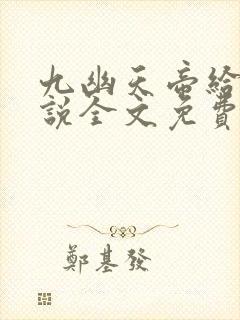 九幽天帝給
說全文免費
鄭基發